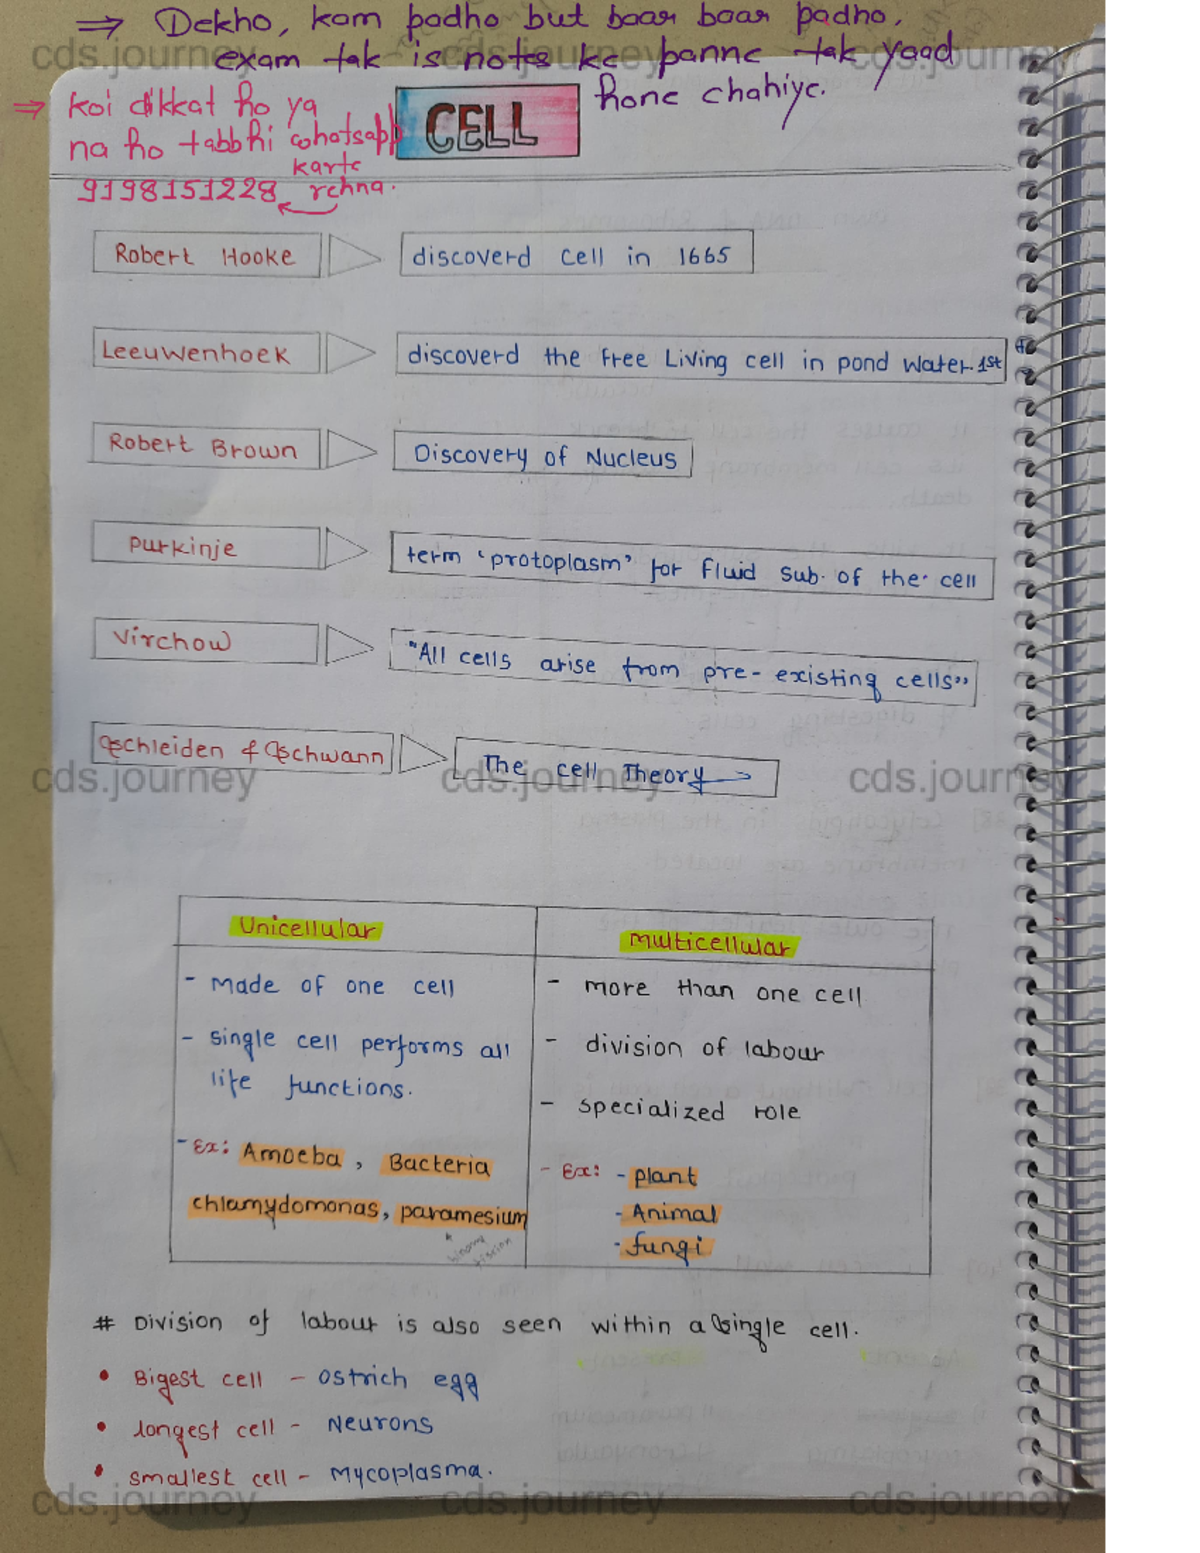 ⇒ Dekho, kam padho but baar baar padho,
exam tak is notes ke panne tak yaad
hone chahiye.
⇒ Koi dikkat ho ya
na ho tabbhi whatsapp
karte
9198151228 rehna.
cds.journey cds.journey cds.journey
CELL
Robert Hooke discoverd cell in 1665
Leeuwenhoek discoverd the free Living cell in pond water. 1st
Robert Brown Discovery of Nucleus
Purkinje term 'protoplasm' for fluid sub. of the cell
Virchow "All cells arise from pre-existing cells"
Schleiden & Schwann The cell Theory
cds.journey cds.journey cds.journey
Unicellular Multicellular
- made of one cell - more than one cell
- single cell performs all - division of labour
life functions.
- specialized role
- Ex: Amoeba, Bacteria - Ex: - plant
chlamydomonas, paramesium - Animal
- fungi
# Division of labour is also seen within a single cell.
• Bigest cell - ostrich egg
• longest cell - Neurons
• smallest cell - Mycoplasma.
cds.journey cds.journey cds.journey